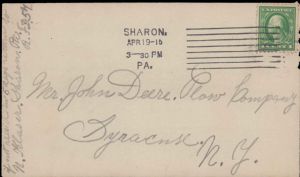 SHARON.
APR 19-16
3-30 PM
PA.
Mr. John Deere. Plow Company
Syracuse
N. Y.
Sharon Pa.